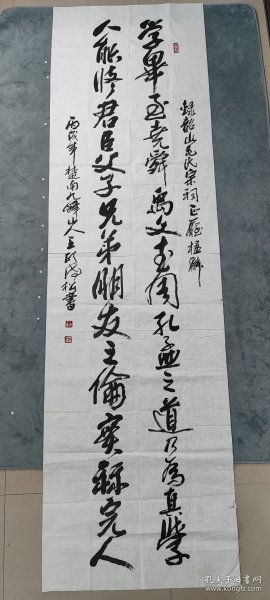 録韶山毛氏宗祠正廳楹聯
学畢至尧舜禹文武周孔孟之道乃為真學
人能修君臣父子兄弟朋友之倫實稱完人
丙戌年楚南九 山人王 松書
孔夫子旧书网
www.kongfz.com